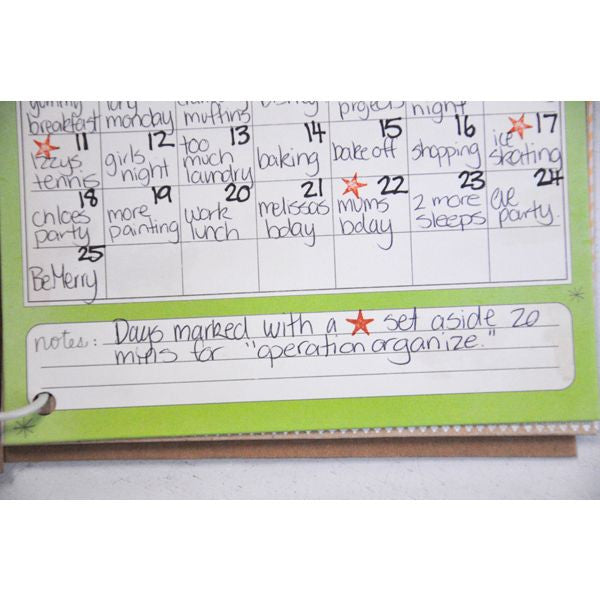 breakfast monday muffins projects night
11 12 13 14 15 16 17
izzys tennis girls night too much laundry baking bake off shopping ice skating
18 19 20 21 22 23 24
chloes party more painting work lunch melissas bday mums bday 2 more sleeps eve party.
25
Be Merry
notes: Days marked with a set aside 20
mins for "operation organize."